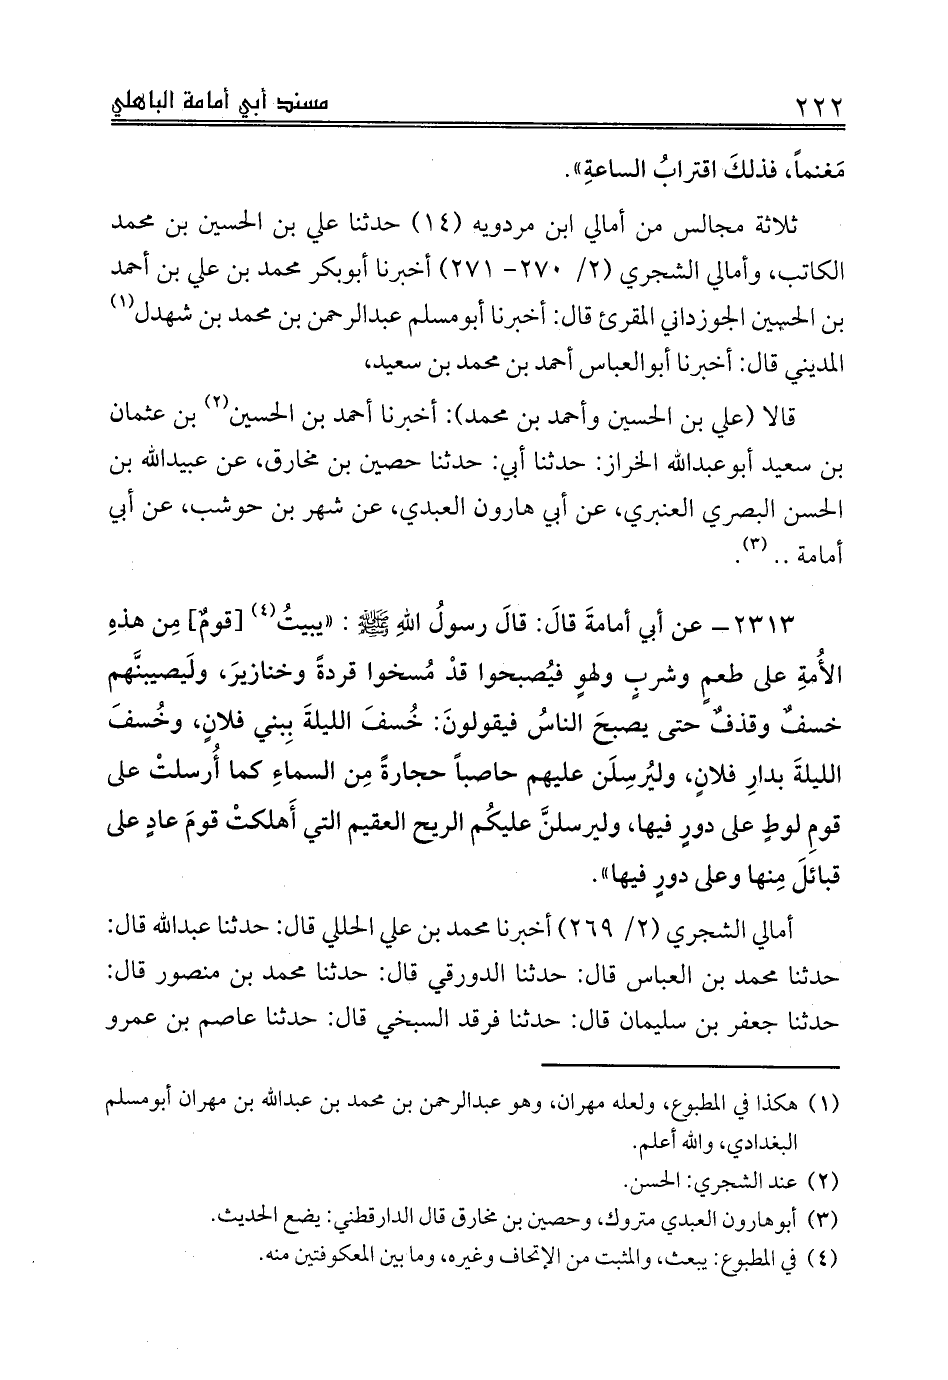 ٢٢٢ مسند أبي أمامة الباهلي
مَغنماً، فذلكَ اقترابُ الساعةِ».
ثلاثة مجالس من أمالي ابن مردويه (١٤) حدثنا علي بن الحسين بن محمد
الكاتب، وأمالي الشجري (٢/ ٢٧٠- ٢٧١) أخبرنا أبوبكر محمد بن علي بن أحمد
بن الحسين الجوزداني المقرئ قال: أخبرنا أبومسلم عبدالرحمن بن محمد بن شهدل(١)
المديني قال: أخبرنا أبوالعباس أحمد بن محمد بن سعيد،
قالا (علي بن الحسين وأحمد بن محمد): أخبرنا أحمد بن الحسين(٢) بن عثمان
بن سعيد أبوعبدالله الخراز: حدثنا أبي: حدثنا حصين بن مخارق، عن عبيدالله بن
الحسن البصري العنبري، عن أبي هارون العبدي، عن شهر بن حوشب، عن أبي
أمامة .. (٣).
٢٣١٣- عن أبي أمامةَ قالَ: قالَ رسولُ اللهِ ﷺ: «يبيتُ(٤) [قومٌ] مِن هذهِ
الأُمةِ على طعمٍ وشربٍ ولهوٍ فيُصبحوا قدْ مُسخوا قردةً وخنازيرَ، ولَيصيبنَّهم
خسفٌ وقذفٌ حتى يصبحَ الناسُ فيقولونَ: خُسفَ الليلةَ بِبني فلانٍ، وخُسفَ
الليلةَ بدارِ فلانٍ، وليُرسِلَن عليهم حاصباً حجارةً مِن السماءِ كما أُرسلتْ على
قومِ لوطٍ على دورٍ فيها، وليرسلنَّ عليكُم الريح العقيم التي أَهلكتْ قومَ عادٍ على
قبائلَ مِنها وعلى دورٍ فيها».
أمالي الشجري (٢/ ٢٦٩) أخبرنا محمد بن علي الحللي قال: حدثنا عبدالله قال:
حدثنا محمد بن العباس قال: حدثنا الدورقي قال: حدثنا محمد بن منصور قال:
حدثنا جعفر بن سليمان قال: حدثنا فرقد السبخي قال: حدثنا عاصم بن عمرو
(١) هكذا في المطبوع، ولعله مهران، وهو عبدالرحمن بن محمد بن عبدالله بن مهران أبومسلم
البغدادي، والله أعلم.
(٢) عند الشجري: الحسن.
(٣) أبوهارون العبدي متروك، وحصين بن مخارق قال الدارقطني: يضع الحديث.
(٤) في المطبوع: يبعث، والمثبت من الإتحاف وغيره، وما بين المعكوفتين منه.